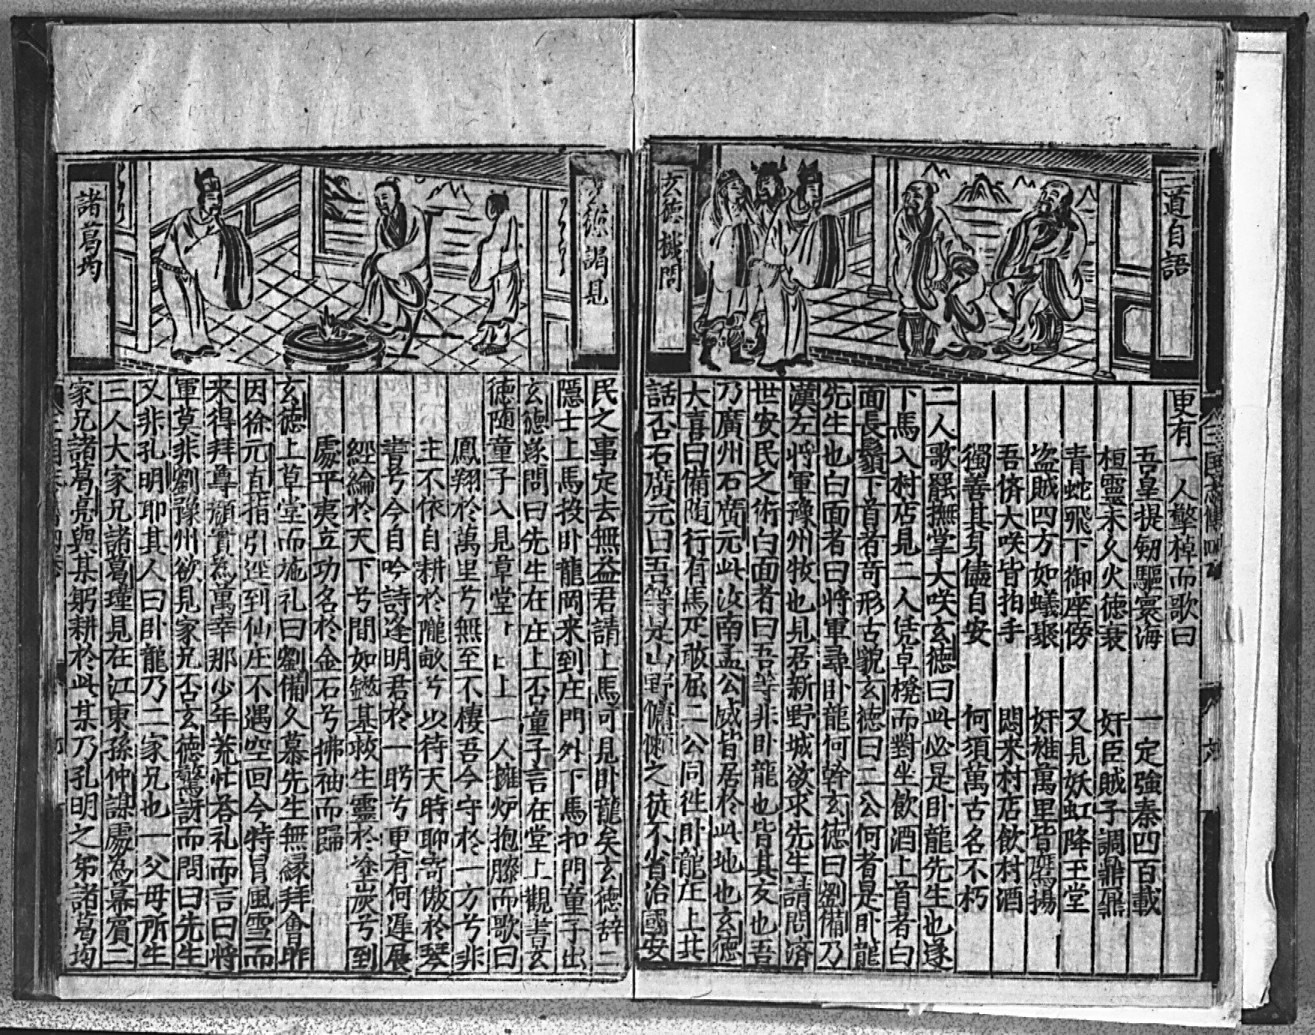 二道自語
玄德惑問
更有一人擊棹而歌曰
吾皇提劒驅寰海　一定強秦四百載
桓靈未久火德衰　奸臣賊子調鼎鼐
青蛇飛下御座傍　又見妖虹降玉堂
盗賊四方如蟻聚　奸雄萬里皆鷹揚
吾儕大咲皆拍手　悶来村店飲村酒
獨善其身儘自安　何須萬古名不朽
二人歌罷撫掌大咲玄德曰此必是卧龍先生也遂
下馬入村店見二人凭卓㧯而對坐飲酒上首者白
面長鬚下首者奇形古貌玄德曰二公何者是卧龍
先生也白面者曰將軍尋卧龍何幹玄德曰劉備乃
漢左將軍豫州牧也見居新野城欲求先生請問済
世安民之術白面者曰吾等非卧龍也皆其友也吾
乃廣州石廣元此汝南孟公威皆居於此地也玄德
大喜曰備隨行有馬疋敢屈二公同往卧龍庄上共
話否石廣元曰吾等是山野慵懶之徒不省治國安
德謁見
諸葛均
民之事定去無益君請上馬可見卧龍矣玄德辞二
隱士上馬投卧龍岡来到庄門外下馬扣門童子出
玄德遂問曰先生在庄上否童子言在堂上觀書玄
德隨童子入見草堂上一人擁炉抱膝而歌曰
鳳翔於萬里兮無至不棲吾今守於一方兮非
主不依自耕於隴畝兮以待天時聊寄傲於琴
書兮今自吟詩逢明君於一朝兮更有何遲展
經綸於天下兮間如鏃其救生靈於塗炭兮到
處平夷立功名於金石兮拂袖而歸
玄德上草堂而施礼曰劉備久慕先生無縁拜會昨
因徐元直指引逕到仙庄不遇空回今特冒風雪而
来得拜尊顔實為萬幸那少年荒忙答礼而言曰將
軍莫非劉豫州欲見家兄否玄德驚訝而問曰先生
又非孔明耶其人曰卧龍乃二家兄也一父母所生
三人大家兄諸葛瑾見在江東孫仲謀處為幕賓二
家兄諸葛亮與某躬耕於此某乃孔明之弟諸葛均